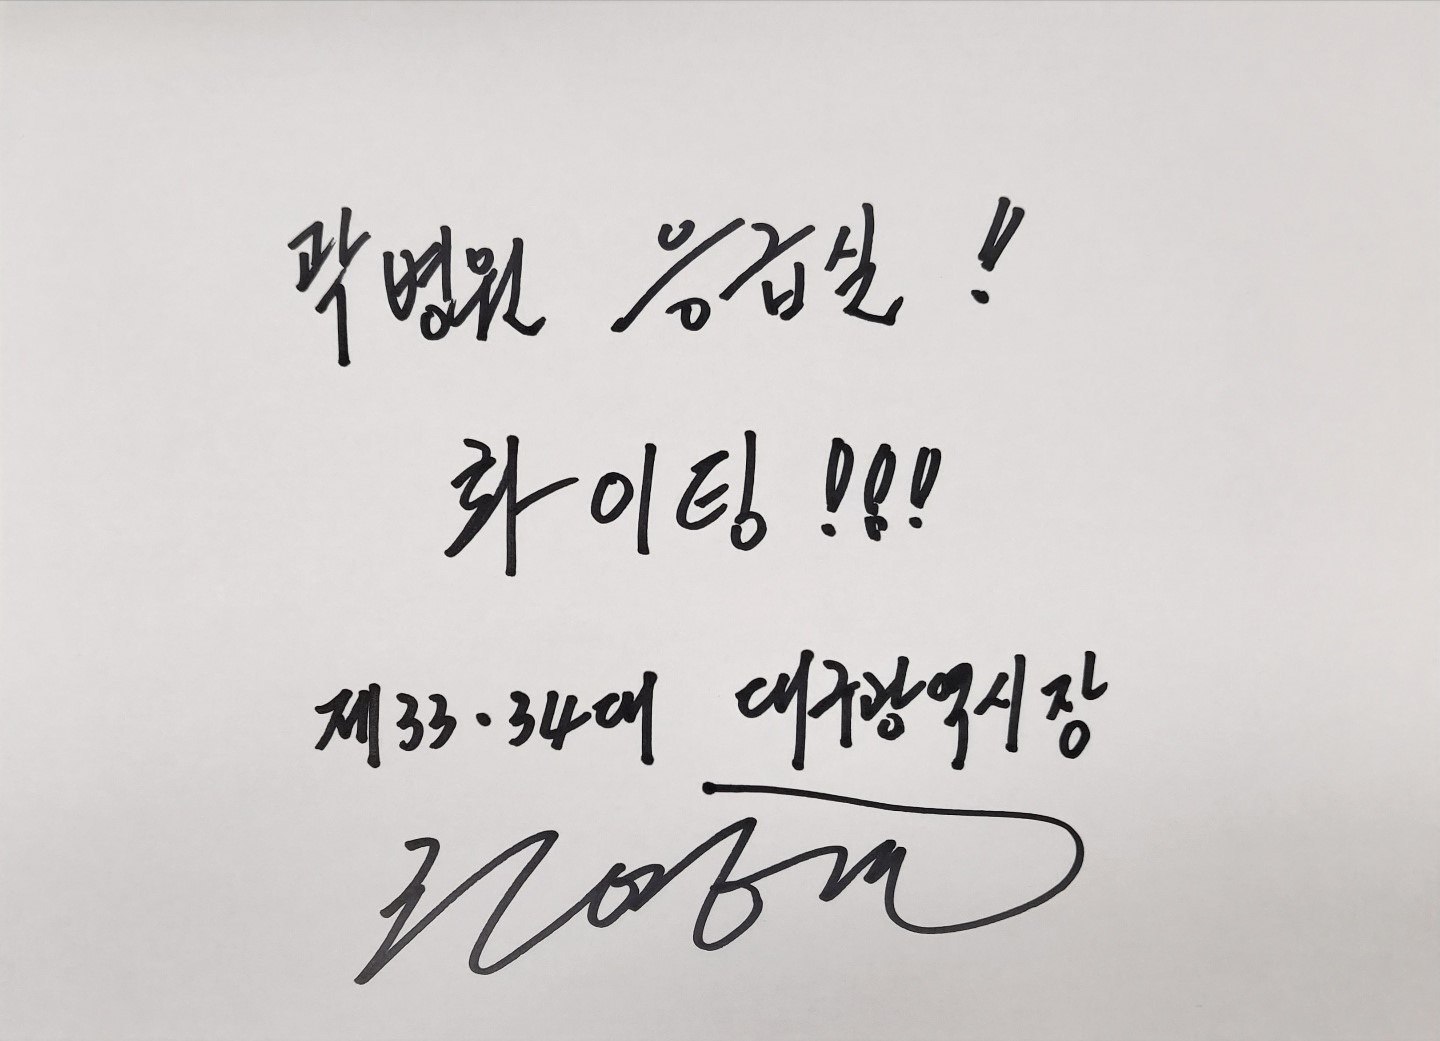 곽병원 응급실!
화이팅!!!
제33·34대 대구광역시장